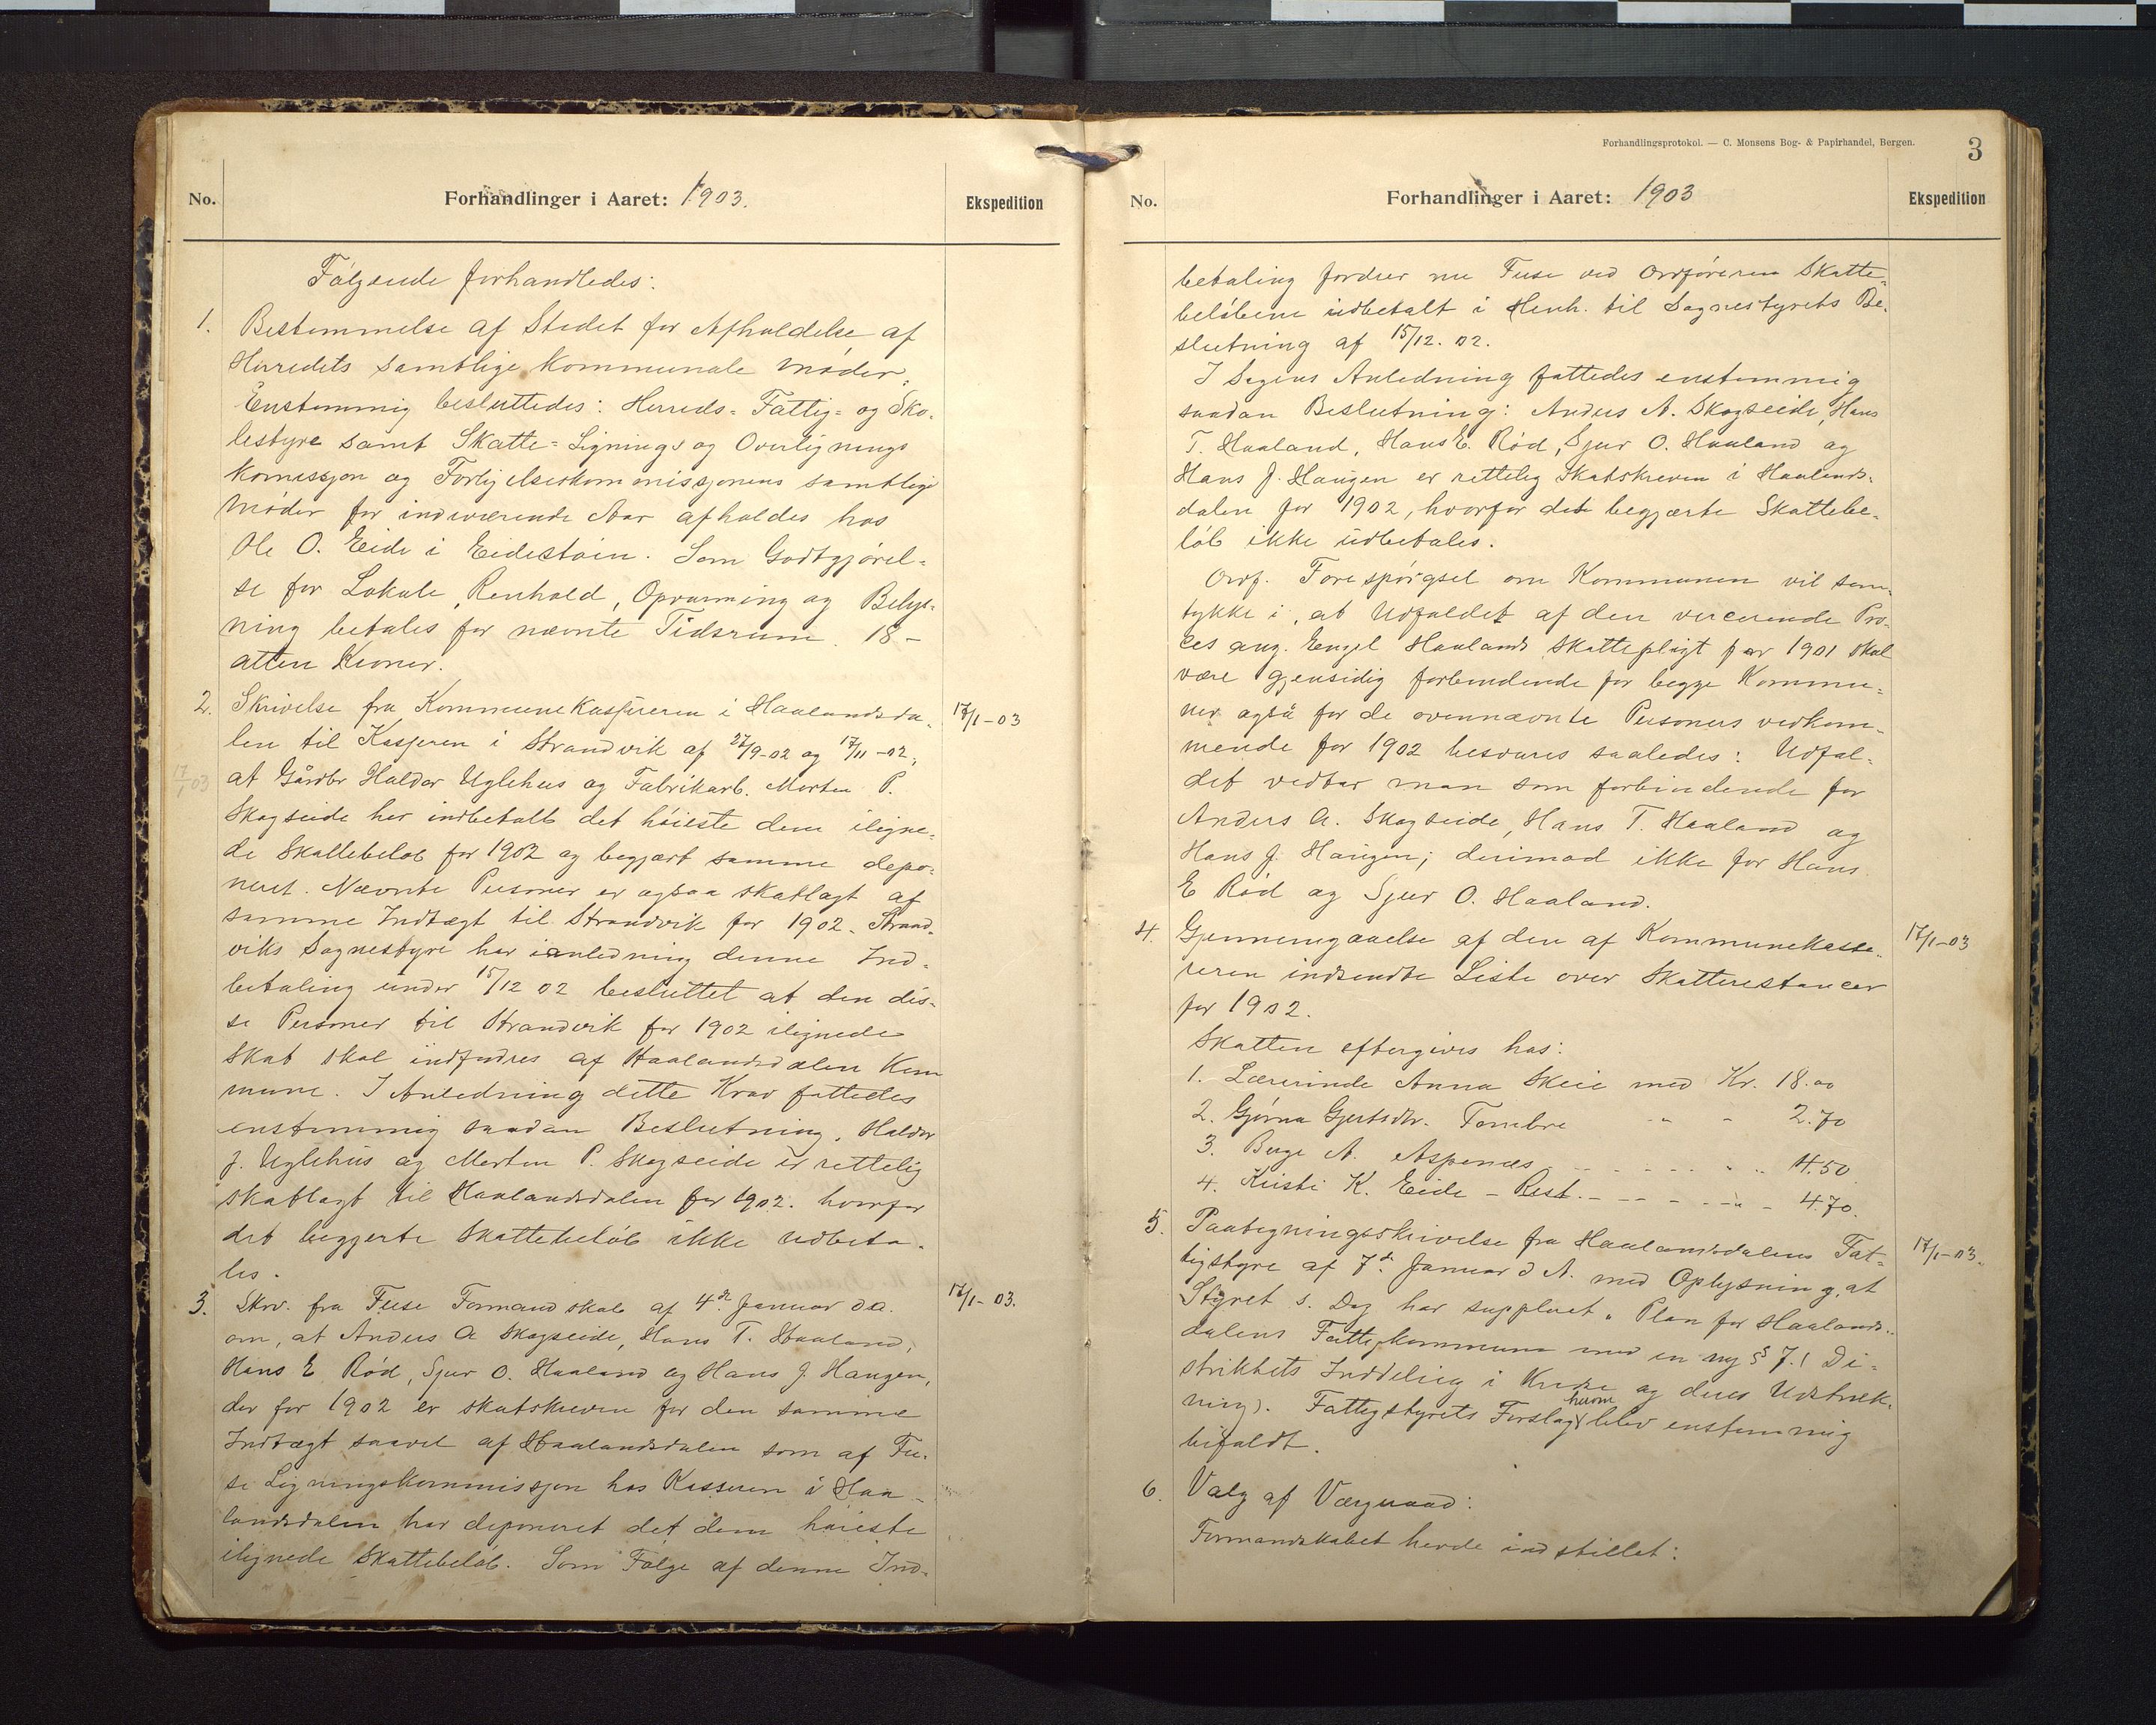 No.
Forhandlinger i Aaret: 1903.
Ekspedition
Følgende forhandledes:
1. Bestemmelse af Stedet for Afholdelse af
Herredets samtlige kommunale Møder.
Enstemmig besluttedes: Herreds- Fattig- og Sko-
lestyre samt Skatte- Lignings og Overlignings
komissjon og Forligelseskommissjonens samtlige
Møder for indeværende Aar afholdes hos
Ole O. Eide i Eidestøin. Som Godtgjørel-
se for Lokale, Renhold, Opvarming og Belys-
ning betales for nævnte Tidsrum 18-
atten Kroner.
2. Skrivelse fra Kommunekasjereren i Haalandsda- 17/1-03
len til Kasjeren i Strandvik af 27/9-02 og 17/11-02,
17/1 03
at Gårdbr Haldor Uglehus og Fabrikarb. Morten P.
Skogseide har indbetalt det høieste dem iligne-
de Skattebeløb for 1902 og begjært samme depo-
neret. Nævnte Personer er ogsaa skatlagt af
samme Indtægt til Strandvik for 1902. Strand-
viks Sognestyre har i anledning denne Ind-
betaling under 15/12 02 besluttet at den dis-
se Personer til Strandvik for 1902 ilignede
Skat skal indfodres af Haalandsdalen Kom
mune. I Anledning dette Krav fattedes
enstemmig saadan Beslutning. Haldor
J. Uglehus og Morten P. Skogseide er rettelig
skatlagt til Haalandsdalen for 1902. hvorfor
det begjerte Skattebeløb ikke udbeta-
les.
3. Skrv. fra Fuse Formandskab af 4de Januar d a. 17/1-03.
om, at Anders A Skogseide, Hans T. Haaland,
Hans E Rød, Sjur O. Haaland og Hans J. Haugen,
der for 1902 er skatskreven for den samme
Indtægt saavel af Haalandsdalen som af Fu-
se Ligningskommissjon hos Kasseren i Haa-
landsdalen har deponeret det dem høieste
ilignede Skattebeløb. Som Følge af denne Ind-
Forhandlingsprotokol. — C. Monsens Bog- & Papirhandel, Bergen.
3
No.
Forhandlinger i Aaret: 1903
Ekspedition
betaling fordrer nu Fuse ved Ordføreren Skatte-
beløbene udbetalt i Henh. til Sognestyrets Be-
slutning af 15/12. 02.
I Sagens Anledning fattedes enstemmig
saadan Beslutning: Anders A. Skogseide, Hans
T. Haaland, Hans E. Rød, Sjur O. Haaland og
Hans J. Haugen er rettelig Skatskreven i Haalands-
dalen for 1902, hvorfor det begjærte Skattebe-
løb ikke udbetales.
Ordf. Forespørgsel om Kommunen vil sam-
tykke i, at Udfaldet af den verserende Pro-
ces ang. Engel Haalands Skattepligt for 1901 skal
være gjensidig forbindende for begge Kommu-
ner også for de ovennævnte Personers vedkom-
mende for 1902 besvares saaledes: Udfal-
det vedtar man som forbindende for
Anders A. Skogseide, Hans T. Haaland og
Hans J. Haugen; derimod ikke for Hans
E Rød og Sjur O. Haaland.
4. Gjennemgaaelse af den af Kommunekasse- 17/1-03
reren indsendte Liste over Skatterestancer
for 1902.
Skatten eftergives hos:
1. Lærerinde Anna Skeie med Kr. 18.00
2. Gjørna Gjertsdtr. Tombre " - 2.70
3. Berge A. Aspenæs - - - - - " " 4.50
4. Kristi K. Eide - Rest. - - - - " - 4.70.
5. Paategningsskrivelse fra Haalandsdalens Fat- 17/1-03.
tigstyre af 7de Januar d A. med Oplysning, at
Styret s. Dag har suppleret "Plan for Haalands-
dalens Fattigkommune med en ny § 7. (Di-
strikkets Inddeling i Kredse og deres Udstræk-
ning). Fattigstyrets Forslag herom blev enstemmig
bifaldt.
6. Valg af Værgeraad:
Formandskabet havde indstillet: